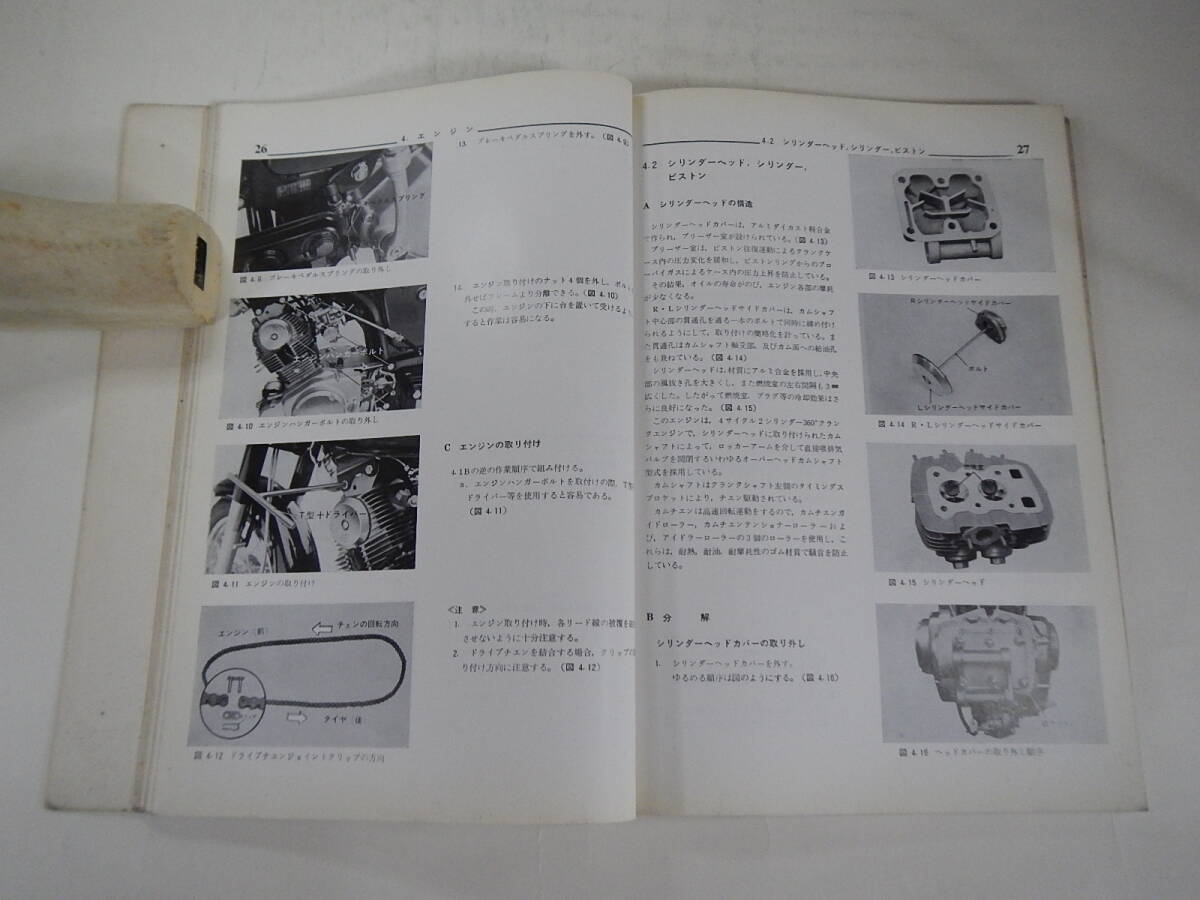 26
4. エンジン
13. ブレーキペダルスプリングを外す。(図 4.
ルスプリング
図 4.9 ブレーキペダルスプリングの取り外し
エンジン取り付けのナット4個を外し、ボルト
外せばフレームより分離できる。(図 4.10)
この時、エンジンの下に台を置いて受けるよ
すると作業は容易になる。
エンジンハンガーボルト
図 4.10 エンジンハンガーボルトの取り外し
C エンジンの取り付け
4.1Bの逆の作業順序で組み付ける。
a. エンジンハンガーボルトを取付けの際、T型
ドライバー等を使用すると容易である。
(図 4.11)
T型+ドライバー
図 4.11 エンジンの取り付け
≪注 意≫
1. エンジン取り付け時、各リード線の被覆を
させないように十分注意する。
2. ドライブチエンを結合する場合、クリップの
り付け方向に注意する。(図 4.12)
エンジン(前)
チェンの回転方向
タイヤ(後)
図 4.12 ドライブチエンジョイントクリップの方向
4.2 シリンダーヘッド、シリンダー、ピストン
27
4.2 シリンダーヘッド、シリンダー、
ピストン
A シリンダーヘッドの構造
シリンダーヘッドカバーは、アルミダイカスト軽合金
で作られ、ブリーザー室が設けられている。(図 4.13)
ブリーザー室は、ピストン往復運動によるクランクケ
ース内の圧力変化を緩和し、ピストンリングからのブロ
ーバイガスによるケース内の圧力上昇を防止している。
その結果、オイルの寿命がのび、エンジン各部の摩耗
が少なくなる。
R・Lシリンダーヘッドサイドカバーは、カムシャフ
ト中心部の貫通孔を通る一本のボルトで同時に締め付け
られるようにして、取り付けの簡略化を計っている。ま
た貫通孔はカムシャフト軸受部、及びカム面への給油孔
をも兼ねている。(図 4.14)
シリンダーヘッドは、材質にアルミ合金を採用し、中央
部の風抜き孔を大きくし、また燃焼室の左右間隔も3㎜
広くした。したがって燃焼室、プラグ等の冷却効果はさ
らに良好になった。(図 4.15)
このエンジンは、4サイクル2シリンダー360°クラン
クエンジンで、シリンダーヘッドに取り付けられたカム
シャフトによって、ロッカーアームを介して直接吸排気
バルブを開閉するいわゆるオーバーヘッドカムシャフト
型式を採用している。
カムシャフトはクランクシャフト左側のタイミングス
プロケットにより、チエン駆動されている。
カムチエンは高速回転運動をするので、カムチエンガ
イドローラー、カムチエンテンショナーローラーおよ
び、アイドラーローラーの3個のローラーを使用し、こ
れらは、耐熱、耐油、耐摩耗性のゴム材質で騒音を防止
している。
B 分 解
シリンダーヘッドカバーの取り外し
1. シリンダーヘッドカバーを外す。
ゆるめる順序は図のようにする。(図 4.16)
図 4.13 シリンダーヘッドカバー
Rシリンダーヘッドサイドカバー
ボルト
Lシリンダーヘッドサイドカバー
図 4.14 R・Lシリンダーヘッドサイドカバー
燃焼室
図 4.15 シリンダーヘッド
図 4.16 ヘッドカバーの取り外し順序